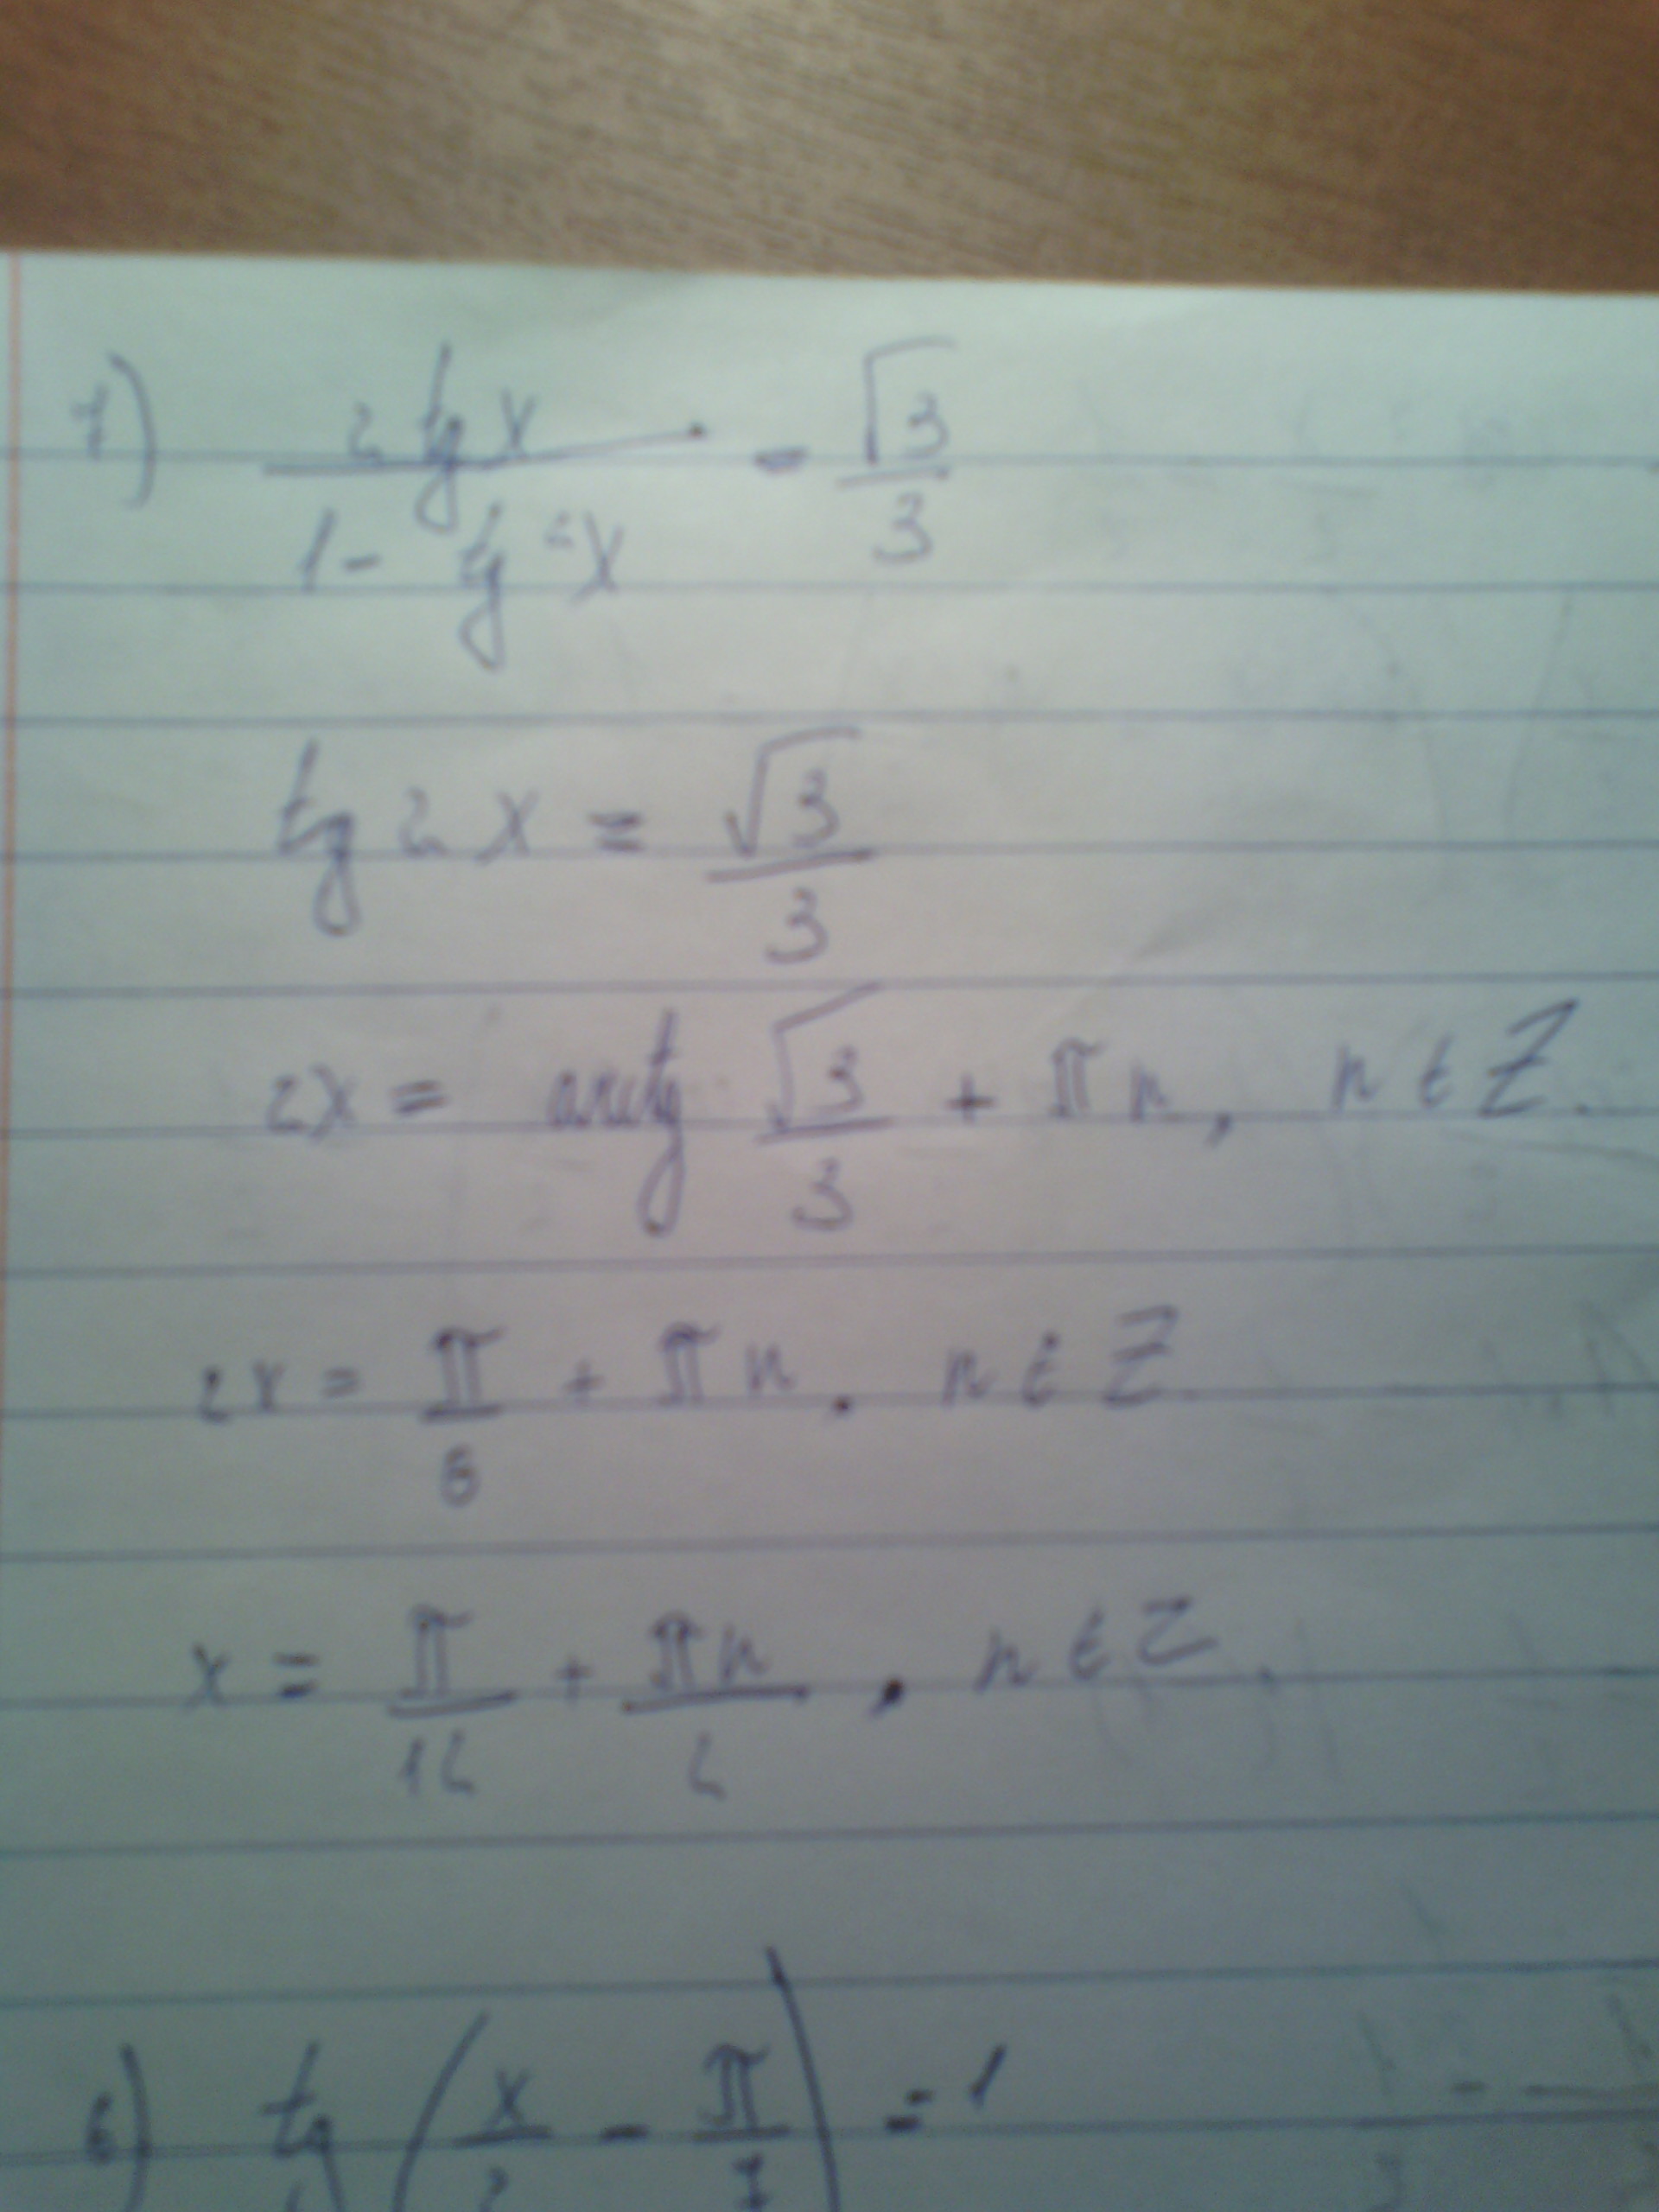 7) 2 tg x / 1 - tg²x = √3 / 3
tg 2x = √3 / 3
2x = arctg √3 / 3 + πn, n ∈ Z.
2x = π / 6 + πn, n ∈ Z.
x = π / 12 + πn / 2, n ∈ Z.
6) tg ( x / 2 - π / 7 ) = 1